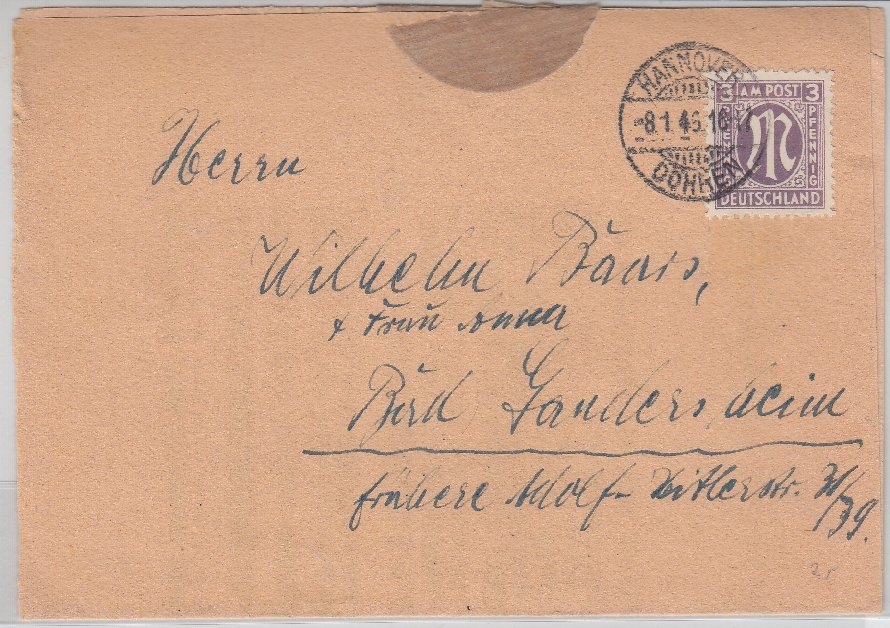 HANNOVER
-8.1.46.18-
DÖHREN
3 AM POST 3
PFENNIG
DEUTSCHLAND
Herrn
Wilhelm Baars,
+ Frau Anna
Bad Gandersheim
frühere Adolf-Hitlerstr.